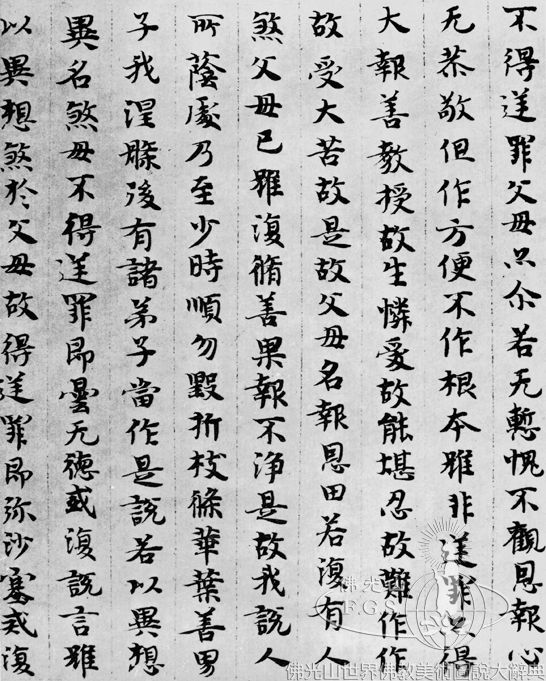 不得逆罪父母亦尒若无慙愧不觀恩報心
无恭敬但作方便不作根本雖非逆罪亦得
大報善教授故生憐愛故能堪忍故難作作
故受大苦故是故父母名報恩田若復有人
煞父母已雖復脩善果報不淨是故我說人
所蔭處乃至少時順勿毀折枝條華葉善男
子我涅槃後有諸弟子當作是說若以異想
異名煞母不得逆罪即曇无德或復說言雖
以異想煞於父母故得逆罪即弥沙塞或復
佛光山
F.G.S.
佛光山世界佛教美術圖說大辭典